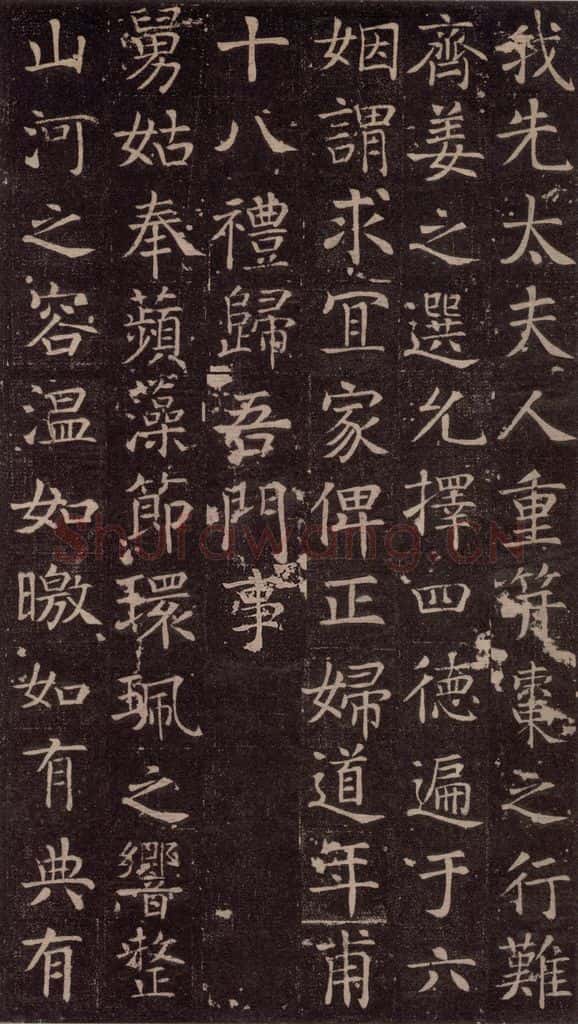 我先太夫人重笄棗之行難
齊姜之選允擇四德遍于六
姻謂求宜家俾正婦道年甫
十八禮歸吾門事
舅姑奉蘋藻節環珮之響整
山河之容温如暾如有典有
Shufawang.CN